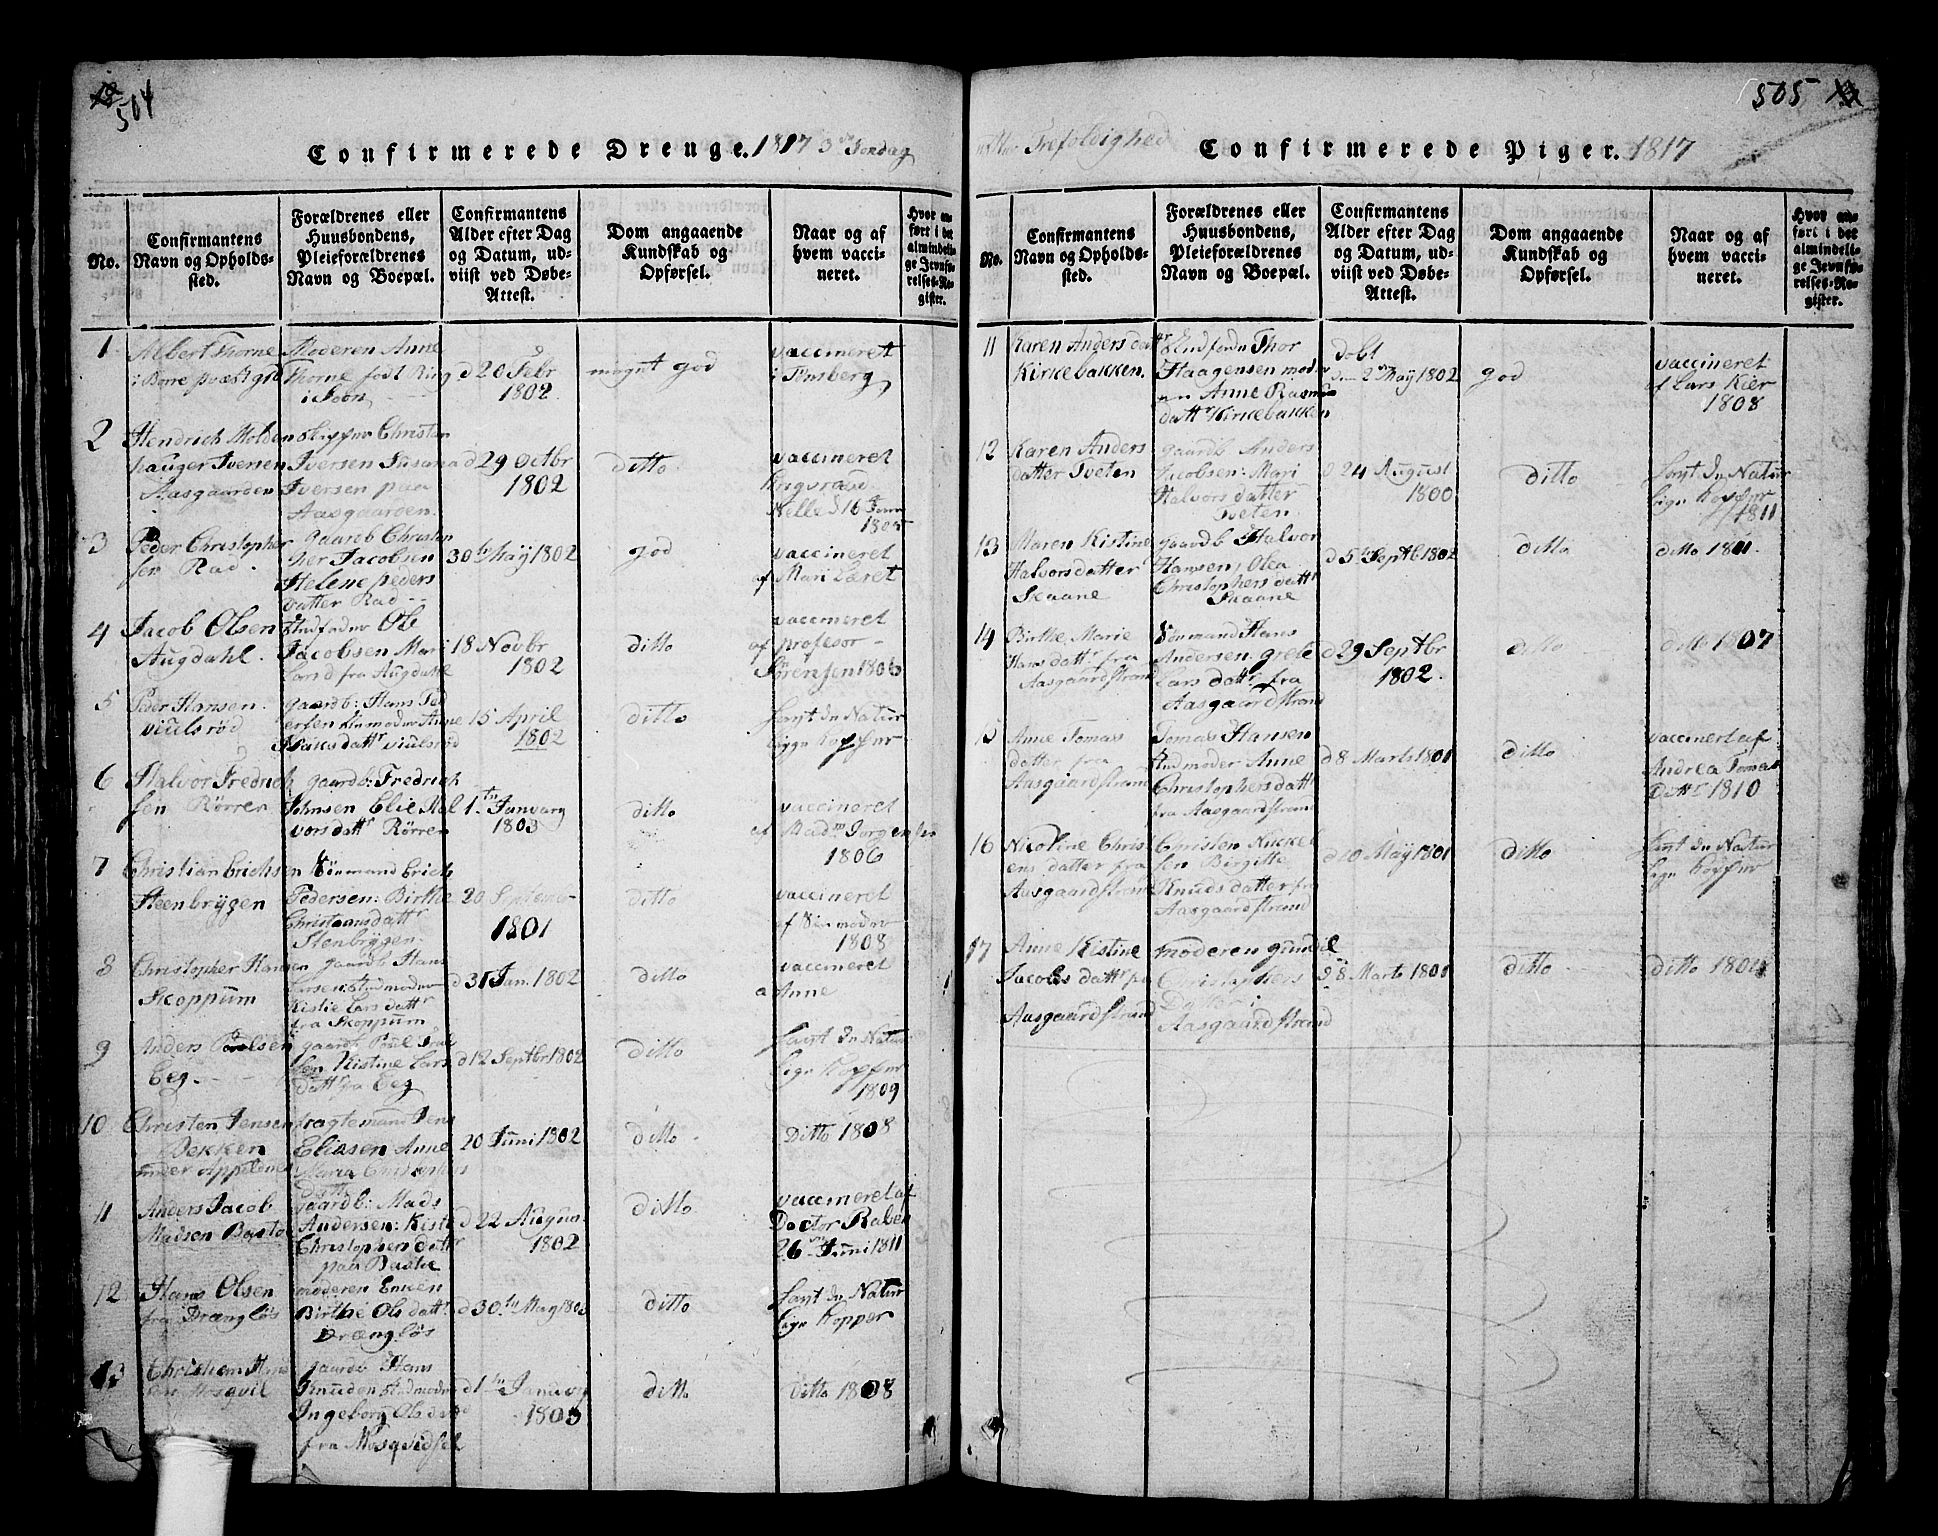 504
Confirmerede Drenge. 1817 3die Søndag
No.
Confirmantens Navn og Opholds-sted.
Forældrenes eller Huusbondens, Pleieforældrenes Navn og Boepæl.
Confirmantens Alder efter Dag og Datum, ud-viist ved Døbe-Attest.
Dom angaaende Kundskab og Opførsel.
Naar og af hvem vacci-neret.
Hvor an-ført i det almindeli-ge Jevnfø-relses-Re-gister.
1
Albert Thorne
i Borre præstgrd
Moderen Anne
Thorne født Ring
i Soon
d 20 Febr
1802
meget god
vaccineret
i Tønsberg
2
Hendrich Molden
hauger Iversen
Aasgaarden
Skipper Christen
Iversen Susana
Iversen paa
Aasgaarden
d 29 Octbr
1802
ditto
vaccineret
d 16 Jan
3
Peder Christopher
sen Rad.
gaardb Christop
her Jacobsen
Helene peders
datter Rad
30te May 1802
god
vaccineret
af Mari Læret
4
Jacob Olsen
Augdahl.
Stedfader Ole
Jacobsen Mari
Lars d fra Augdahl
18 Novbr
1802
ditto
vaccineret
af profesor
Sørensen 1806
5
Peder Hansen
viulsrød
gaardb: Hans Ped
ersen Anne
Isaksdattr viulsrød
15 April
1802
ditto
havt de Natur
lige Kopper
6
Halvor Fredrich
sen Rørren
gaardb: Fredrich
Johnsen Elie Hal
vorsdattr Rørren
1te Januarg
1803
ditto
vaccineret
af Madm Jorgensen
1806
7
Christian Erichsen
Steenbrÿgen
Sønmand Erich
Pedersen: Birthe
Christansdattr
Stenbrÿgen
20 September
1801
ditto
vaccineret
1808
8
Christopher Hansen
Skoppum
gaardb Hans
Larsen: Stedmoder
Kistie Lars dattr
fra Skoppum
d 31 Jan. 1802
ditto
vaccineret
a Anne
9
Anders Poulsen
Eeg.
gaardb Poul
sen Kistine Lars
dattr fra Eeg
d 12 Septbr 1802
ditto
havt de Natur
lige Kopper
1809
10
Christen Jensen
Bekken
under Applenes
fragtemand Jens
Eliasen Anne
Maria Christophers
dattr
20 Juni 1802
ditto
Ditto 1808
11
Anders Jacob
Madsen Bastøe
gaardb: Mads
Andersen: Kisti
Christophers dattr
paa Bastøe
d 22 Augus
1802
ditto
vaccineret af
Doctor Raben
26 Juni 1811
12
Hans Olsen
fra Drængløs
moderen Enken
Birthe Ols dattr
Drængløs
d 30te May 1803
ditto
havt de Natur
lige Kopper
13
Christian Han
sen Mosqvil
gaardb Hans
Knudsen Stedmoder
Ingeborg Ols datt
fra Mosqvidsel
d 1te Januarg
1803
ditto
Ditto 1808
505
efter Trefoldighed
Confirmerede Piger. 1817
No.
Confirmantens Navn og Opholds-sted.
Forældrenes eller Huusbondens, Pleieforældrenes Navn og Boepæl.
Confirmantens Alder efter Dag og Datum, ud-viist ved Døbe-Attest.
Dom angaaende Kundskab og Opførsel.
Naar og af hvem vacci-neret.
Hvor an-ført i det almindeli-ge Jevnfø-relses-Re-gister.
11
Karen Anders dattr
Kirkebakken.
Stedfader Thor
Haagensen moder
en Anne Rasmus
dattr Kirkebakken
døbt
den 2den May 1802
god
vaccineret
af Lars Kier
1808
12
Karen Anders
datter Tveten
gaardb Anders
Jacobsen: Mari
Halvors datter
Tveten
d 24 August
1800
ditto
havt de Natur
lige Kopper
1811
13
Maren Kistine
Halvorsdatter
Skaane
gaardb Halvor
Hansen, Olea
Christophers dattr
Skaane
d 5te Septb 1802
ditto
ditto 1801.
14
Birthe Marie
Hans dattr fra
Aasgaardstrand
Sønmand Hans
Andersen. grete
Lars dattr fra
Aasgaardstrand
d 29 Septbr
1802.
ditto
ditto 1807
15
Anne Tomas
datter fra
Aasgaardstrand
Tomas Hansen
Stedmoder Anne
Christophersdatt
fra Aasgaardstrand
d 8 Marts 1801
ditto
vaccinert af
Andrea Tomas
Dattr 1810
16
Nicoline Chris
ens datter fra
Aasgaardstrand
Christen Nickel
sen Birgitte
Knuds datter fra
Aasgaardstrand
d 10 May 1801
ditto
havt de Natur
lige Kopper
17
Anne Kistine
Jacobs dattr fra
Aasgaardstrand
moderen gundil
Christophers
Datter i
Aasgaardstrand
d 8 Marts 1801
ditto
ditto 1801